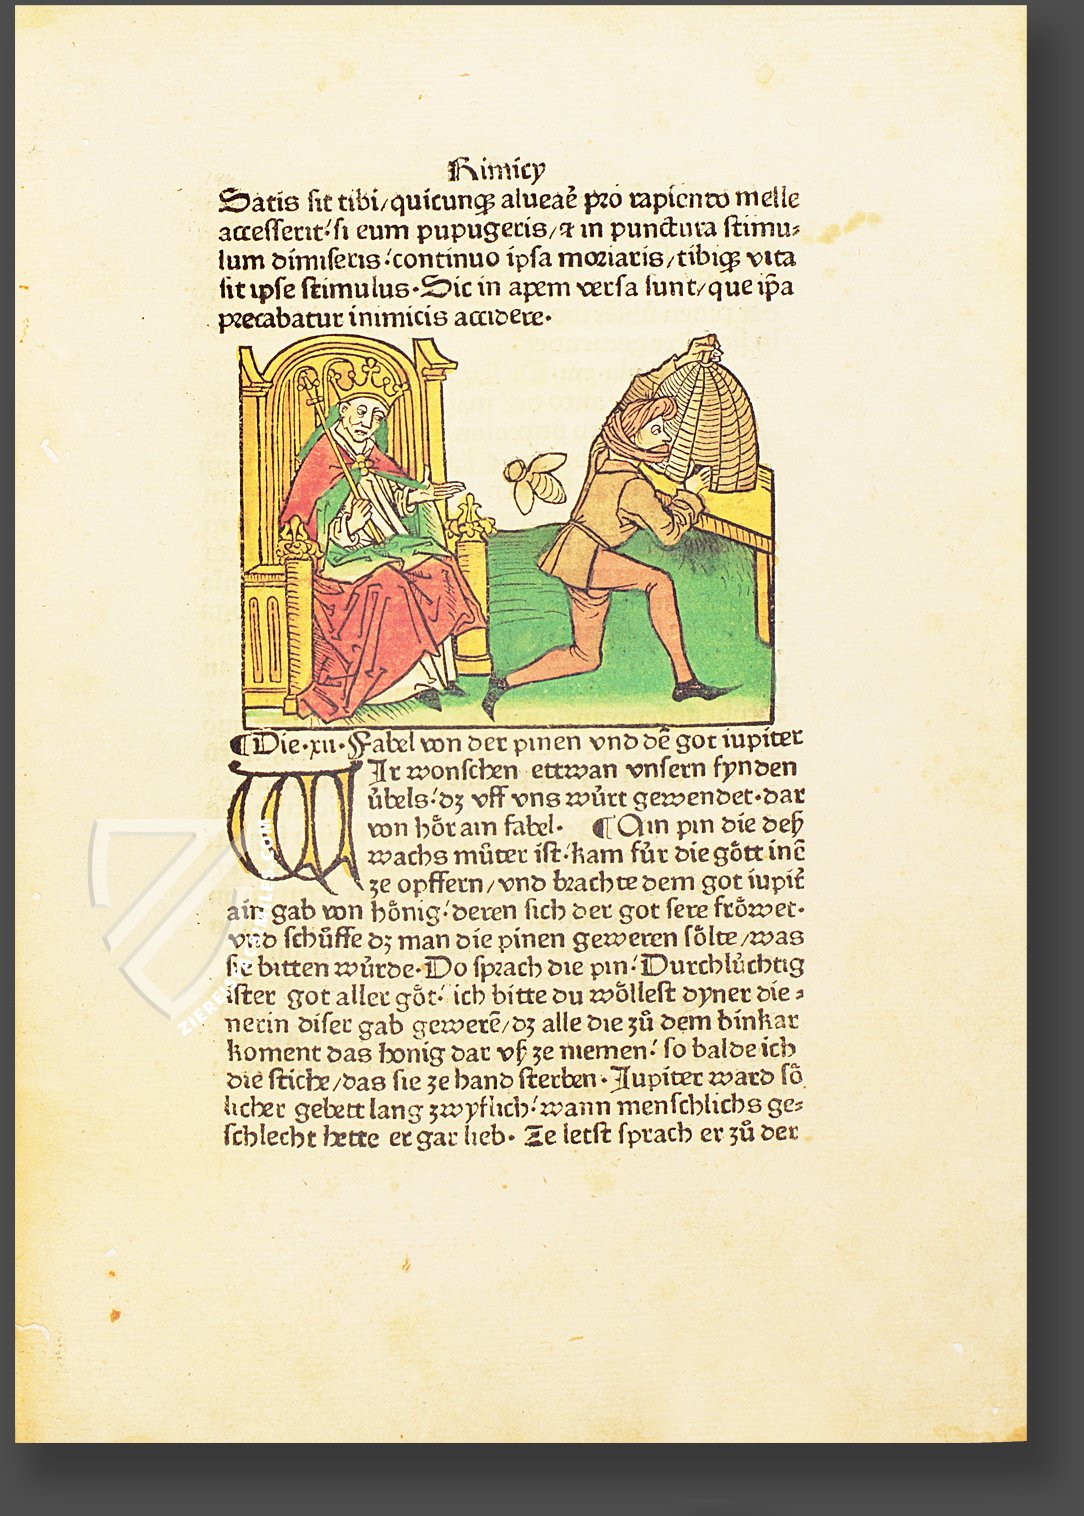 Rimicy
Satis sit tibi/quicunqȝ alueaē pro rapiendo melle
accesserit:si eum pupugeris/⁊ in punctura stimu⸗
lum dimiseris:continuo ipsa moriaris/tibiqȝ vita
sit ipse stimulus·Sic in apem versa sunt/que ip̄a
precabatur inimicis accidere·
¶Die·xii·Fabel von der pinen vnd dē got iupiter
WIr wonschen ettwan vnsern fynden
úbels:dȝ vff vns wúrt gewendet·dar
von hoͤr ain fabel· ¶Ain pin die deß
wachs muͦter ist:kam fúr die goͤtt inē
ze opffern/vnd brachte dem got iupit̄
ain gab von hoͤnig:deren sich der got sere froͤwet·
vnd schuͦffe dȝ man die pinen geweren soͤlte/was
sie bitten wúrde·Do sprach die pin:Durchlúchtig
ister got aller goͤt:ich bitte du woͤllest dyner die⸗
nerin diser gab gewerē/dȝ alle die zuͦ dem binkar
koment das honig dar vß ze niemen:so balde ich
die stiche/das sie ze hand sterben·Iupiter ward soͤ
licher gebett lang zwyflich:wann menschlichs ge⸗
schlecht hette er gar lieb· Ze letst sprach er zuͦ der